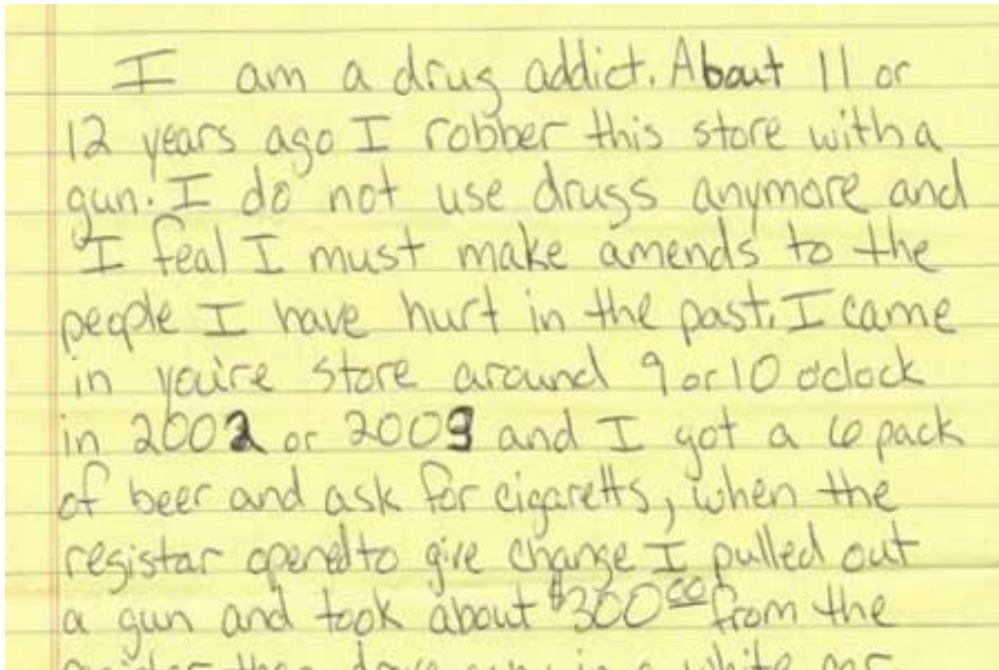 I am a drug addict. About 11 or
12 years ago I robber this store with a
gun. I do not use drugs anymore and
I feal I must make amends to the
people I have hurt in the past. I came
in youire store around 9 or 10 oclock
in 2002 or 2003 and I got a 6 pack
of beer and ask for cigaretts, when the
registar opened to give change I pulled out
a gun and took about $300.00 from the
then drove away in a white